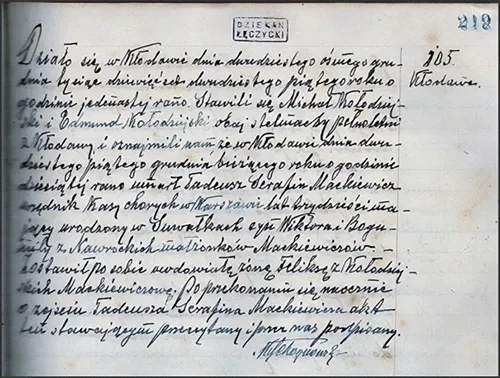 DZIEKAN
ŁĘCZYCKI
219
105.
Kłodawa.
Działo się w Kłodawie dnia dwudziestego ósmego gru-
dnia tysiąc dziewięćset dwudziestego piątego roku o
godzinie jedenastej rano. Stawili się Michał Kołodziej-
ski i Edmund Kołodziejski obaj stelmachy pełnoletni
z Kłodawy i oznajmili nam że w Kłodawie dnia dwu-
dziestego piątego grudnia bieżącego roku o godzinie
dziesiątej rano umarł Tadeusz Serafin Mackiewicz
urzędnik Kasy Chorych w Warszawie lat trzydzieści ma-
jący urodzony w Suwałkach syn Wiktora i Bogu-
miły z Nawrockich małżonków Mackiewiczów.
Zostawił po sobie owdowiałą żonę Feliksę z Kołodziej-
skich Mackiewiczową. Po przekonaniu się naocznie
o zejściu Tadeusza Serafina Mackiewicza akt
ten stawającym przeczytany i przez nas podpisany.